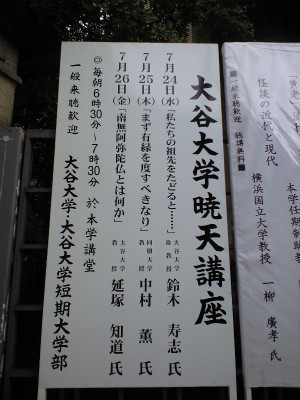 大谷大学暁天講座
7月24日(水)「私たちの祖先をたどると……」大谷大学准教授 鈴木 寿志 氏
7月25日(木)「まず有縁を度すべきなり」同朋大学教授 中村 薫 氏
7月26日(金)「南無阿弥陀仏とは何か」大谷大学教授 延塚 知道 氏
◎毎朝6時30分〜7時30分 於 本学講堂
一般来聴歓迎
大谷大学・大谷大学短期大学部
■一般来聴歓迎 聴講無料■
怪談の近代と現代
横浜国立大学教授 一柳 廣孝 氏